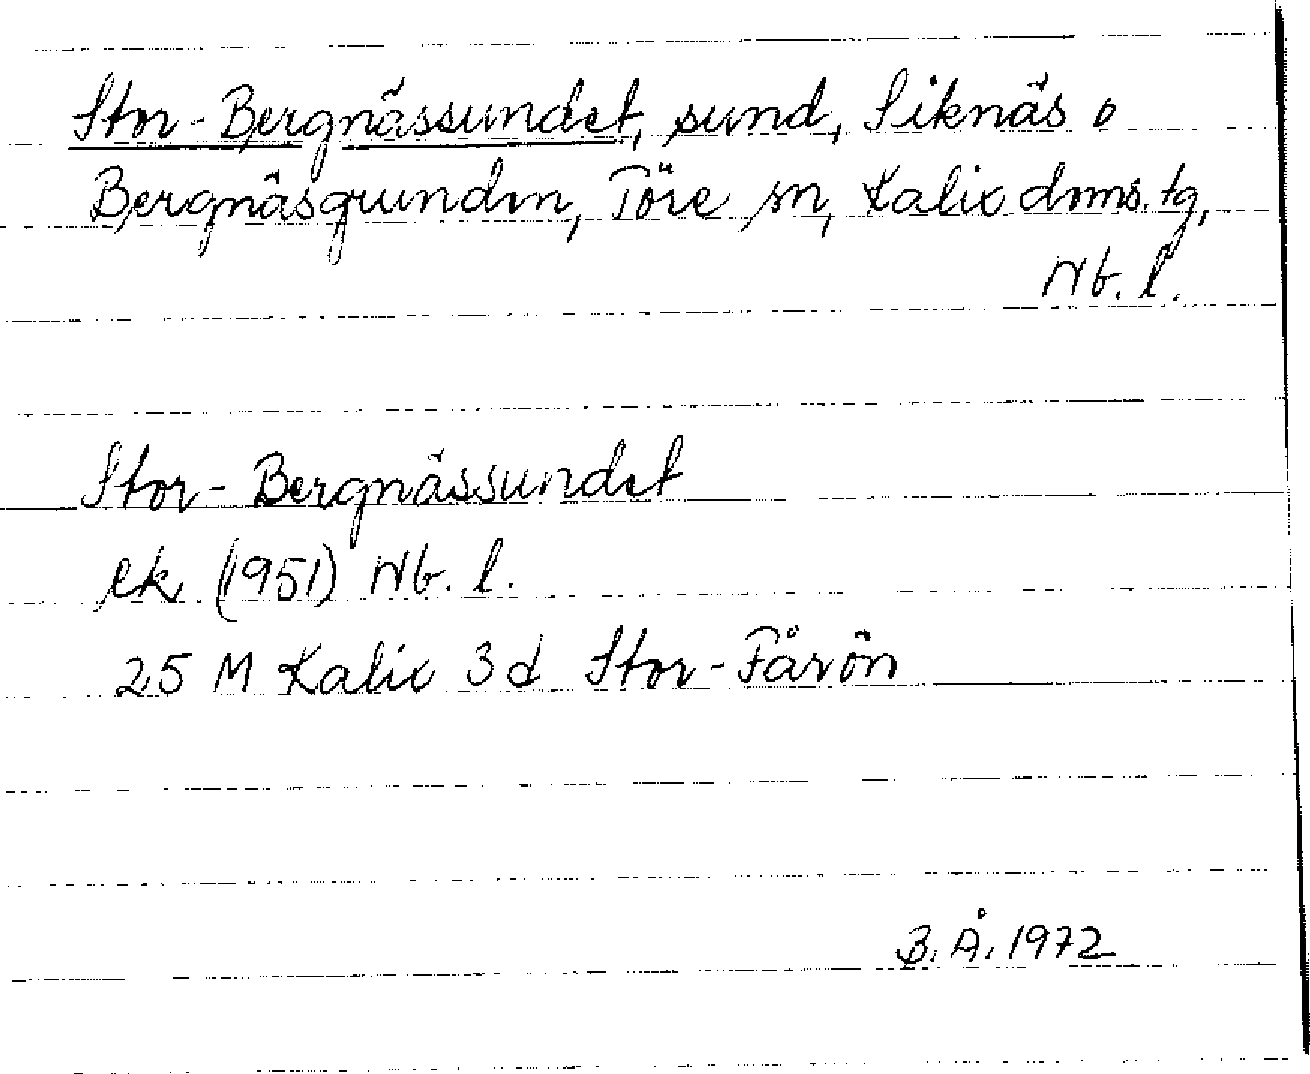 Stor-Bergnässundet, sund, Siknäs o
Bergnäsgrunden, Töre sn, Kalix doms. tg,
Nb. l.
Stor-Bergnässundet
ek (1951) Nb. l.
25 M Kalix 3d Stor-Fårön
B. Å. 1972